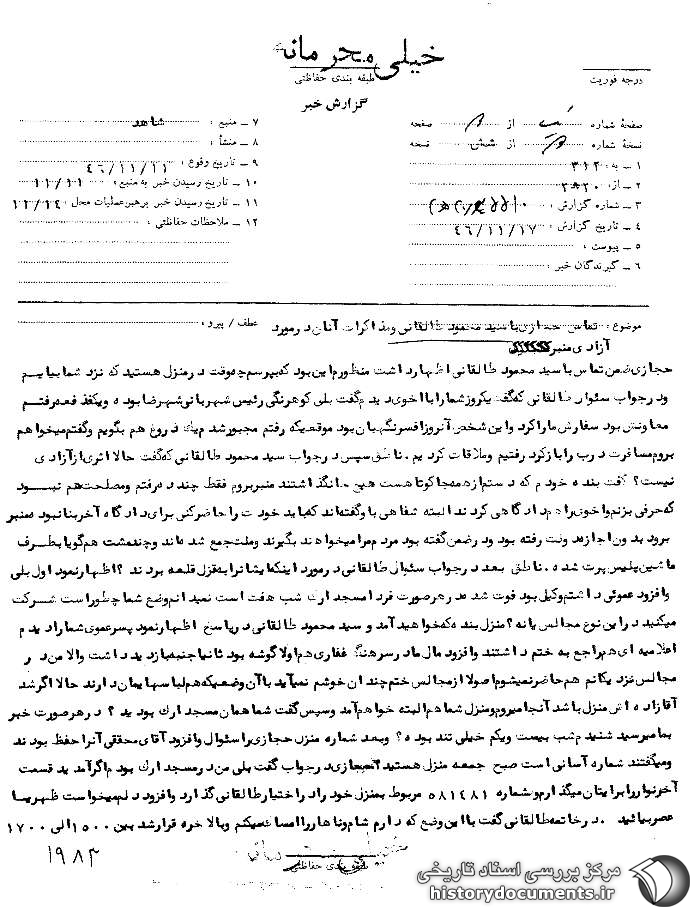 خیلی محرمانه
طبقه بندی حفاظتی
درجه فوریت
گزارش خبر
صفحهٔ شماره از صفحه
نسخهٔ شماره از شش نسخه
۱ ـ به : ۳۱۲
۲ ـ از :
۳ ـ شماره گزارش :
۴ ـ تاریخ گزارش : ۴۶/۱۱/۱۷
۵ ـ پیوست :
۶ ـ گیرندگان خبر :
۷ ـ منبع : شاهد
۸ ـ منشأ :
۹ ـ تاریخ وقوع : ۴۶/۱۱/۱۱
۱۰ ـ تاریخ رسیدن خبر به منبع : ۱۱/۱۱
۱۱ ـ تاریخ رسیدن خبر برهبر عملیات محل : ۱۱/۱۴
۱۲ ـ ملاحظات حفاظتی :
موضوع : تماس حجازی با سید محمود طالقانی و مذاکرات آنان در مورد عطف / پیرو :
آزادی منبر
حجازی ضمن تماس با سید محمود طالقانی اظهار داشت منظورم این بود که بپرسم چه وقت در منزل هستید که نزد شما بیاییم
و در جواب سئوال طالقانی که گفت یکروز شما را با اخوی دیدم گفت بلی کوهرنگی رئیس شهربانی شهرضا بوده و یکدفعه رفتم
معاونش بود سفارش ما را کرد و این شخص آنروز افسر نگهبان بود موقعیکه رفتم مجبور شدم یک دروغ هم بگویم و گفتم میخواهم
بروم مسافرت درب را باز کرد رفتیم و ملاقات کردیم . ناطق سپس در جواب سید محمود طالقانی که گفت حالا اثری از آزادی
نیست ؟ گفت بنده خودم که دستم از همه جا کوتا هست هیچ جا نگذاشتند منبر بروم فقط چند ده رفتم و مصلحت هم نبود
که حرفی بزنم و اخوی را هم دادگاهی کردند البته شفاهی با و گفته اند که باید خودت را حاضر کنی برای دادگاه آخر بنا نبود منبر
برود بدون اجازه و نت رفته بود و در ضمن گفته بود مردم مرا میخواهند بگیرند و ملت جمع شده اند و چند مشت هم گویا بطرف
ماشین پلیس پرت شده . ناطق بعد در جواب سئوال طالقانی در مورد اینکه ایشانرا به قزل قلعه بردند ؟ اظهار نمود اول بلی
و افزود عموئی داشتم وکیل بود فوت شده در هر صورت فردا مسجد ارک شب هفت است نمیدانم وضع شما چطور است شرکت
میکنید در این نوع مجالس یا نه ؟ منزل بنده که خواهید آمد و سید محمود طالقانی در پاسخ اظهار نمود پسر عموی شما را دیدم
اعلامیه ای هم راجع به ختم داشتند و افزود مال مادر سرهنگ غفاری هم اولا گوشه بود ثانیا جنبه بازدید داشت والا من در
مجالس نزدیکانم هم حاضر نمیشوم اصولا از مجالس ختم چندان خوشم نمیآید با آن وضعیکه هم لباسهایمان دارند حالا اگر شد
آقازاده اش منزل باشد آنجا میروم و منزل شما هم البته خواهم آمد و سپس گفت شما همان مسجد ارک بودید ؟ در هر صورت خبر
بما میرسید شنیدم شب بیست و یکم خیلی تند بوده ؟ و بعد شماره منزل حجازی را سئوال و افزود آقای محققی آنرا حفظ بودند
و میگفتند شماره آسانی است صبح جمعه منزل هستید ؟ حجازی در جواب گفت بلی من در مسجد ارک بودم اگر آمدید قسمت
آخر نوار را برایتان میگذارم و شماره ۵۸۱۴۸۱ مربوط بمنزل خود را در اختیار طالقانی گذارد و افزود دلم میخواست ظهر یا
عصر بیائید . در خاتمه طالقانی گفت با این وضع که دارم شام و ناهار را امساک میکنم و بالاخره قرار شد بین ۱۵۰۰ الی ۱۷۰۰
۱۹۸۴
خیلی محرمانه
طبقه بندی حفاظتی
مرکز بررسی اسناد تاریخی
historydocuments.ir